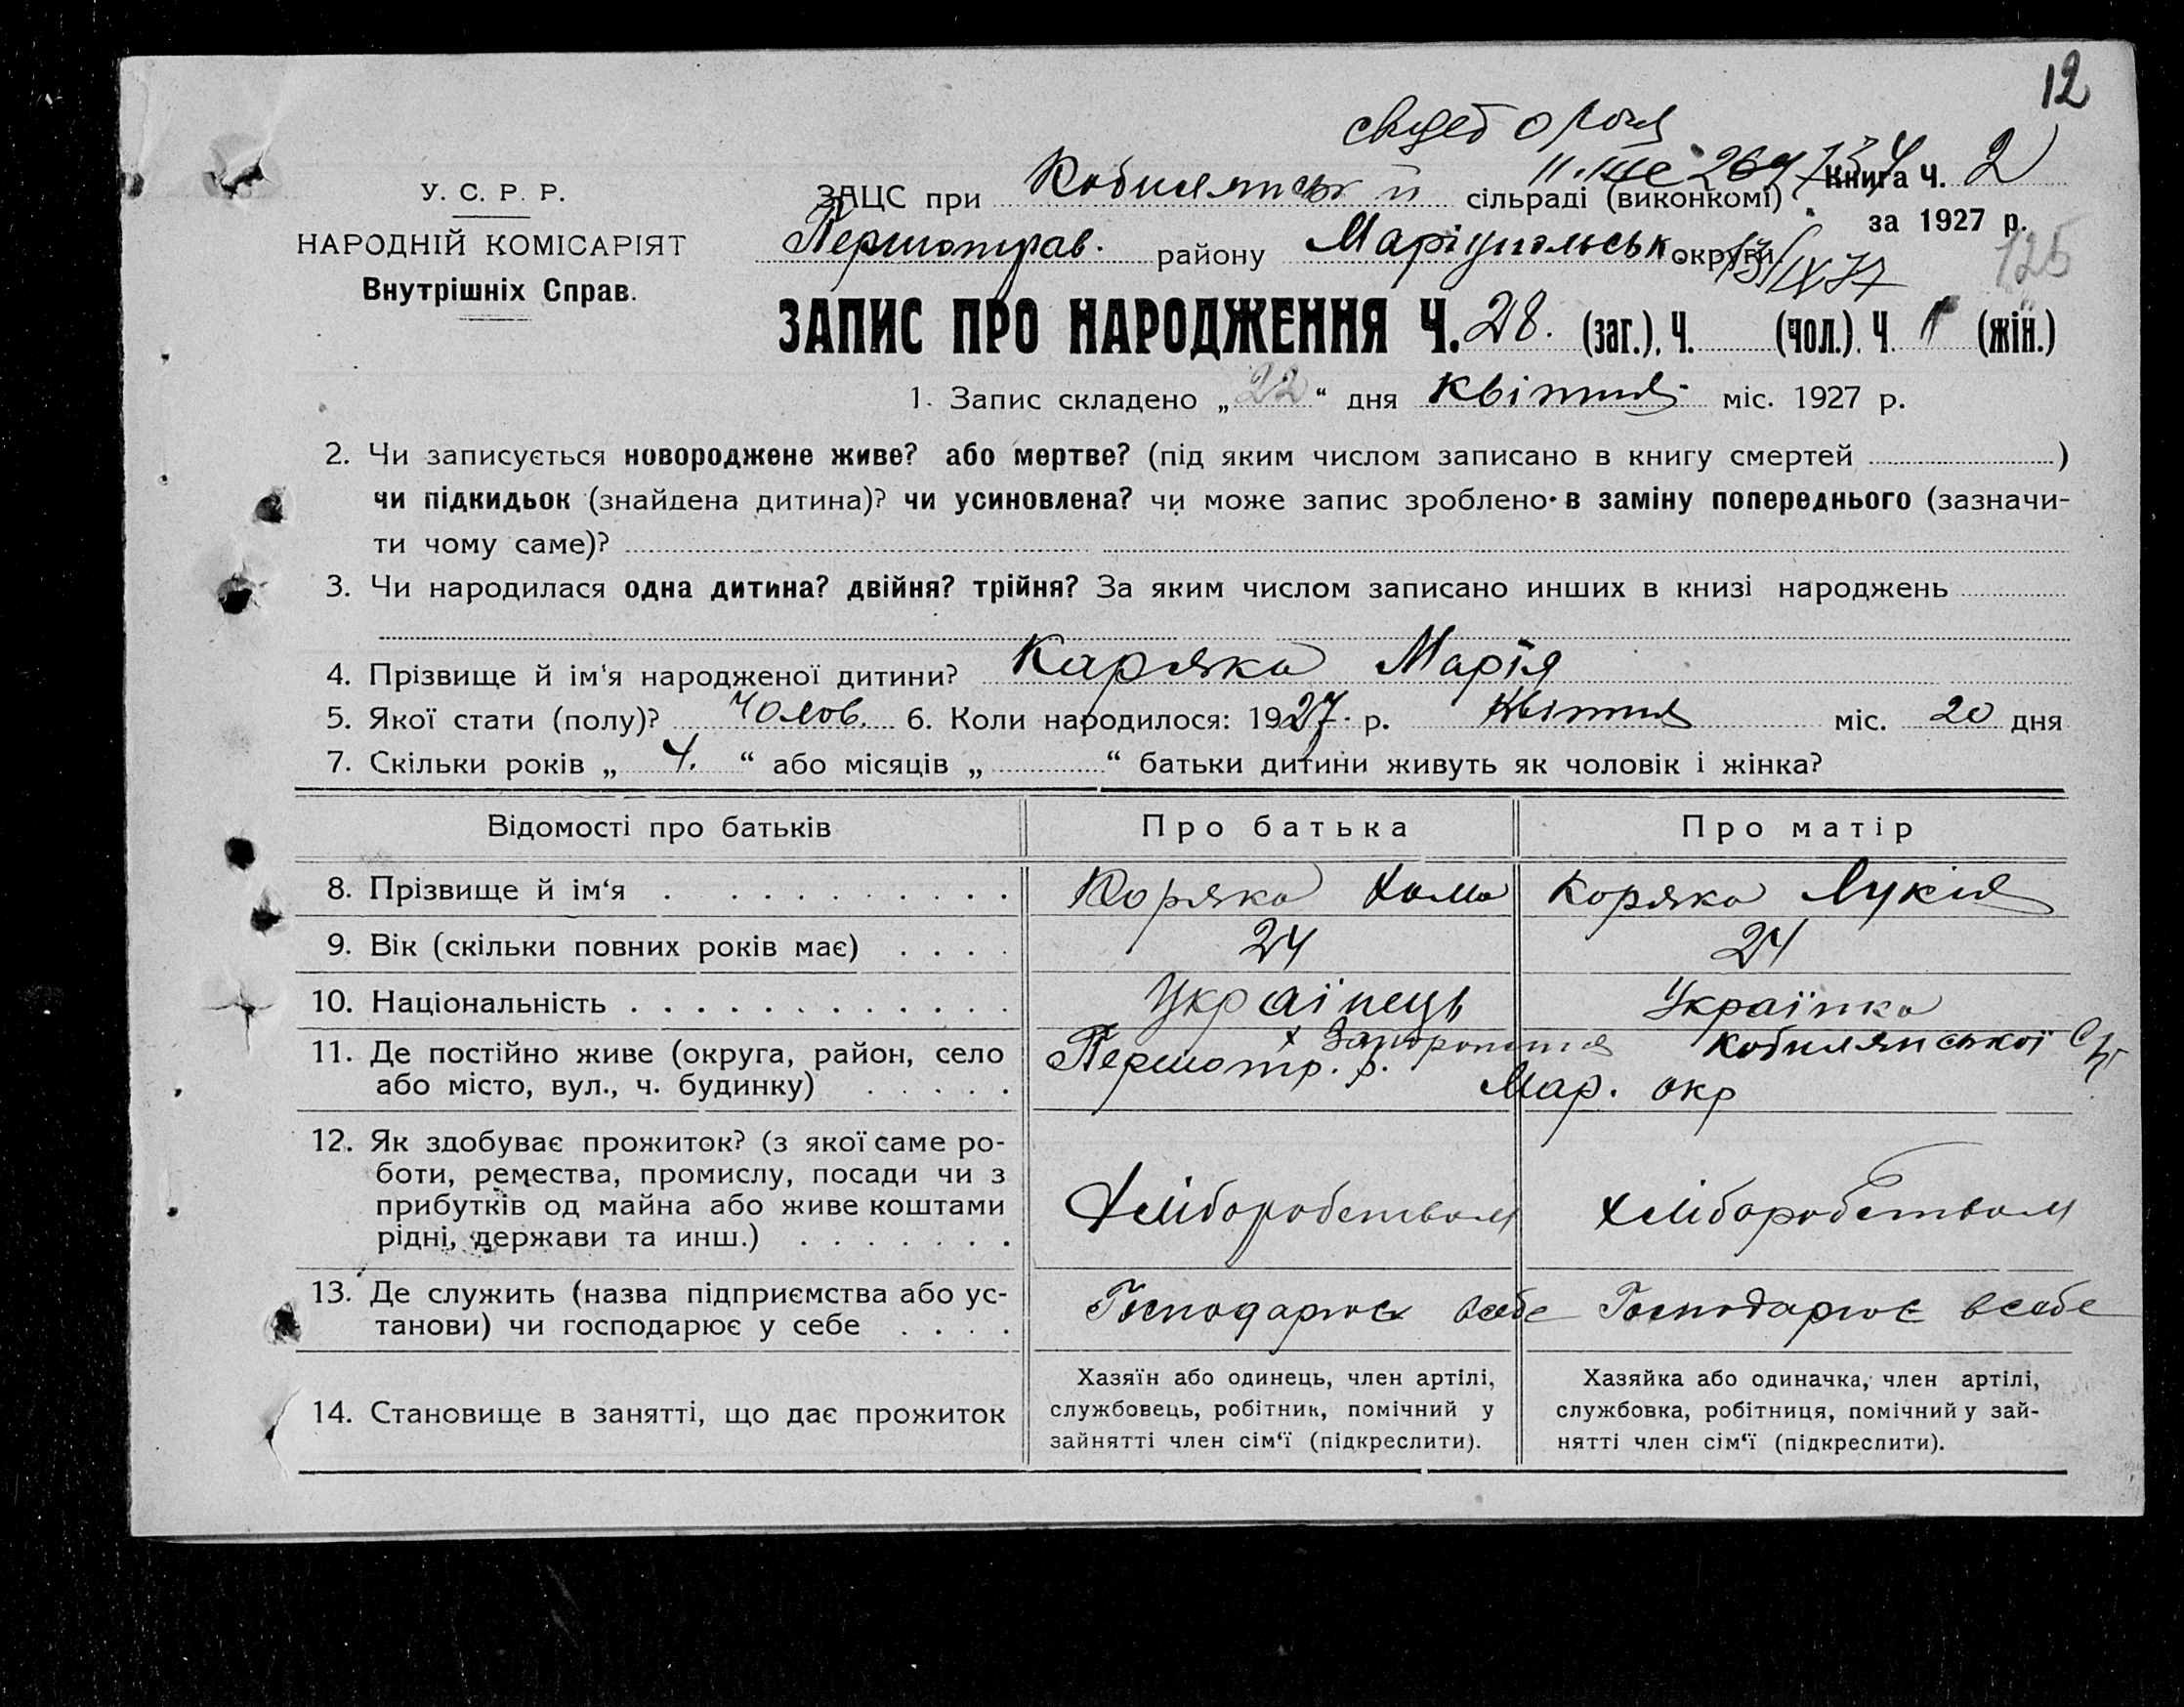 12
свидет о рожд
У. С. Р. Р.
ЗАЦС при Кобилянськ й сільраді (виконкомі) Книга Ч. 2
НАРОДНІЙ КОМІСАРІЯТ
Першотрав. району Маріупольськ округи за 1927 р.
Внутрішніх Справ.
125
ЗАПИС ПРО НАРОДЖЕННЯ Ч. 28. (заг.), Ч. (чол.). Ч. (жін.)
1. Запис складено „ 22 “ дня Квітня міс. 1927 р.
2. Чи записується новороджене живе? або мертве? (під яким числом записано в книгу смертей )
чи підкидьок (знайдена дитина)? чи усиновлена? чи може запис зроблено в заміну попереднього (зазначи-
ти чому саме)?
3. Чи народилася одна дитина? двійня? трійня? За яким числом записано инших в книзі народжень
4. Прізвище й ім'я народженої дитини? Каряка Марія
5. Якої стати (полу)? Чолов. 6. Коли народилося: 1927. р. Квітня міс. 20 дня
7. Скільки років „ 4. “ або місяців „ “ батьки дитини живуть як чоловік і жінка?
Відомості про батьків Про батька Про матір
8. Прізвище й ім‘я Коряка Хома Коряка Лукія
9. Вік (скільки повних років має) 24 24
10. Національність Українець Українка
11. Де постійно живе (округа, район, село х Запоріжжя Кобилянської С/р
або місто, вул., ч. будинку) Першотр. р. Мар. окр
12. Як здобуває прожиток? (з якої саме ро-
боти, ремества, промислу, посади чи з
прибутків од майна або живе коштами Хліборобством хліборобством
рідні, держави та инш.)
13. Де служить (назва підприємства або ус- Господарює всебе Господарює всебе
танови) чи господарює у себе
14. Становище в занятті, що дає прожиток
Хазяїн або одинець, член артілі,
службовець, робітник, помічний у
зайнятті член сім‘ї (підкреслити).
Хазяйка або одиначка, член артілі,
службовка, робітниця, помічний у зай-
нятті член сім‘ї (підкреслити).